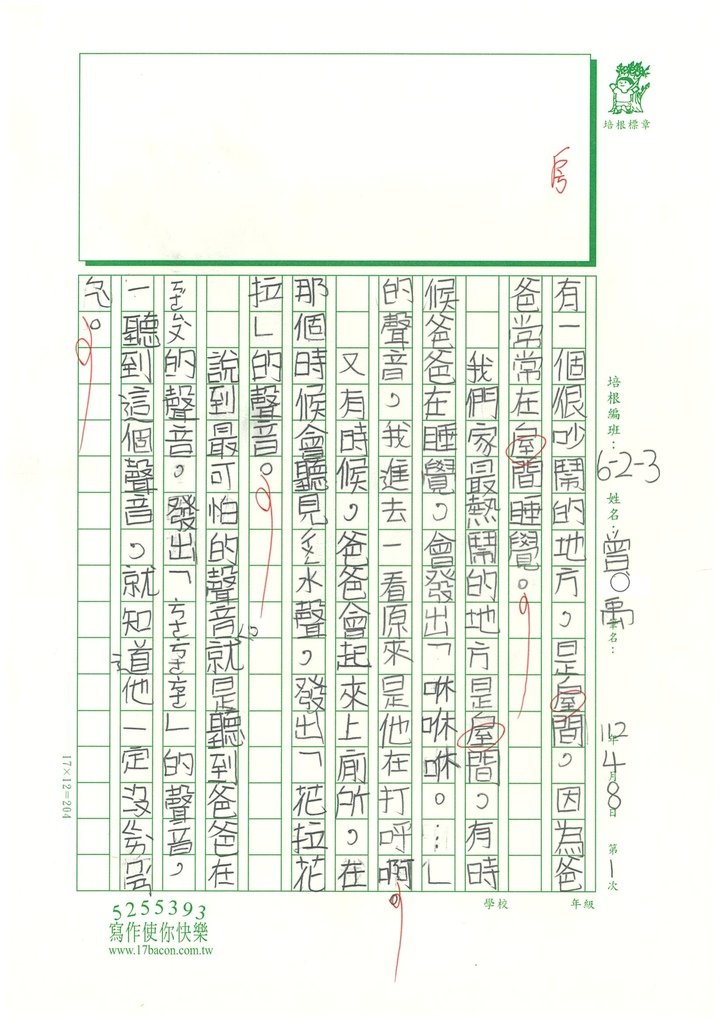 房
培根標章
培根編班：6-2-3 姓名：曾○禹 112年4月8日 第1次
有一個很吵鬧的地方，是屋間，因為爸
爸常常在屋間睡覺。
我們家最熱鬧的地方是屋間，有時
候爸爸在睡覺，會發出「咻咻咻。…」
的聲音，我進去一看原來是他在打呼啊。
又有時候，爸爸會起來上廁所，在
那個時候會聽見水聲，發出「花拉花
拉」的聲音。
說到最可怕的聲音就是聽到爸爸在
的聲音。發出「ㄘㄘ」的聲音，
一聽到這個聲音，就知道他一定沒
17×12=204
學校 年級
5255393
寫作使你快樂
www.17bacon.com.tw